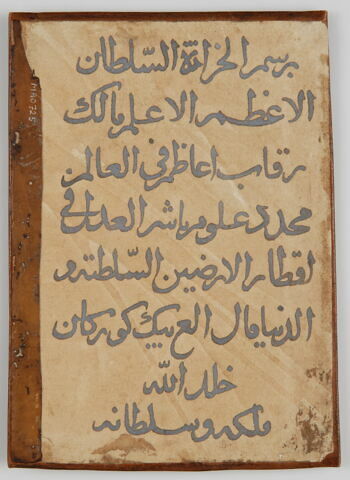 برسم الخزانة السلطان
الاعظم الاعلم مالك
رقاب اعاظم في العالم
مجدد علوم ناشر العدل في
اقطار الارضين السلطنة و
الدنيا قال الغ بيك كوركان
خلد الله
ملكه وسلطانه
MAO 725